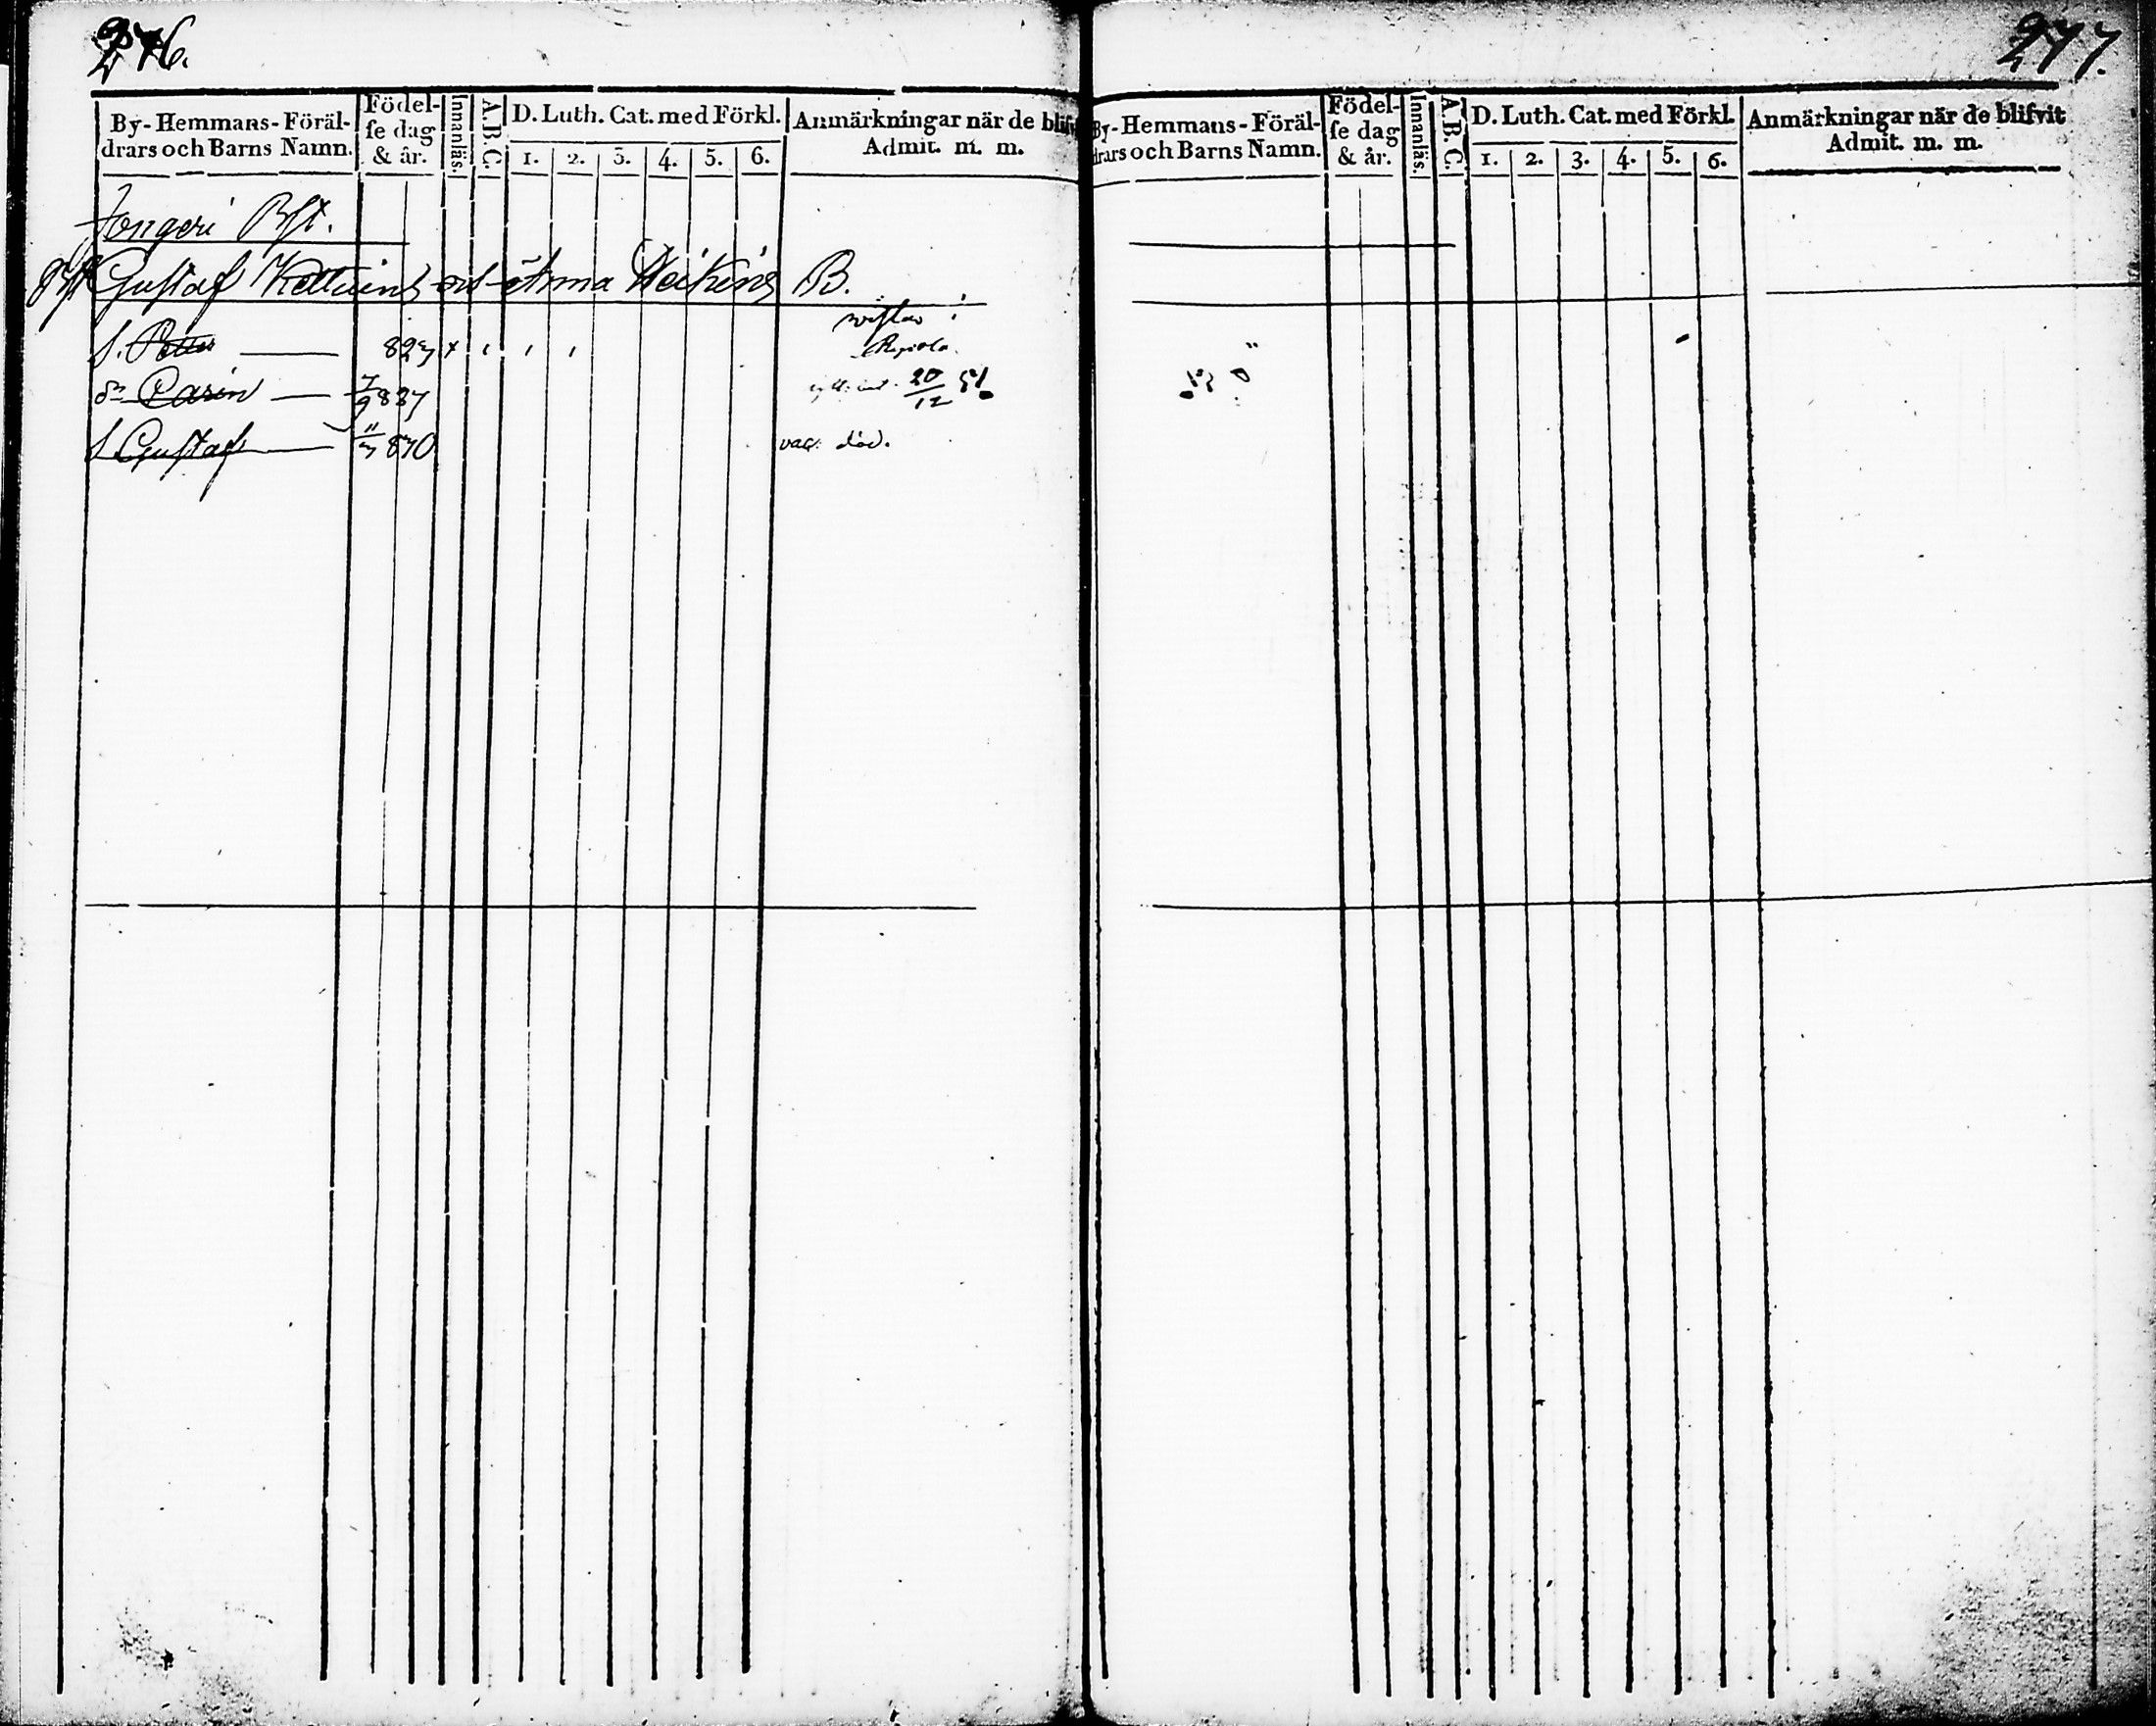 276.
By-Hemmans-Föräl-
drars och Barns Namn.
Födel-
se dag
& år.
Innanläs.
A.B.C.
D. Luth. Cat. med Förkl.
1. 2. 3. 4. 5. 6.
Anmärkningar när de blifv
Admit. m. m.
Gustaf och Anna B.
S. Petter 827 x
vistas i
dr Carin 7/9 837 20/12 51
S Gustaf 11/7 870
vac: död.
277.
By-Hemmans-Föräl-
drars och Barns Namn.
Födel-
se dag
& år.
Innanläs.
A.B.C.
D. Luth. Cat. med Förkl.
1. 2. 3. 4. 5. 6.
Anmärkningar när de blifvit
Admit. m. m.